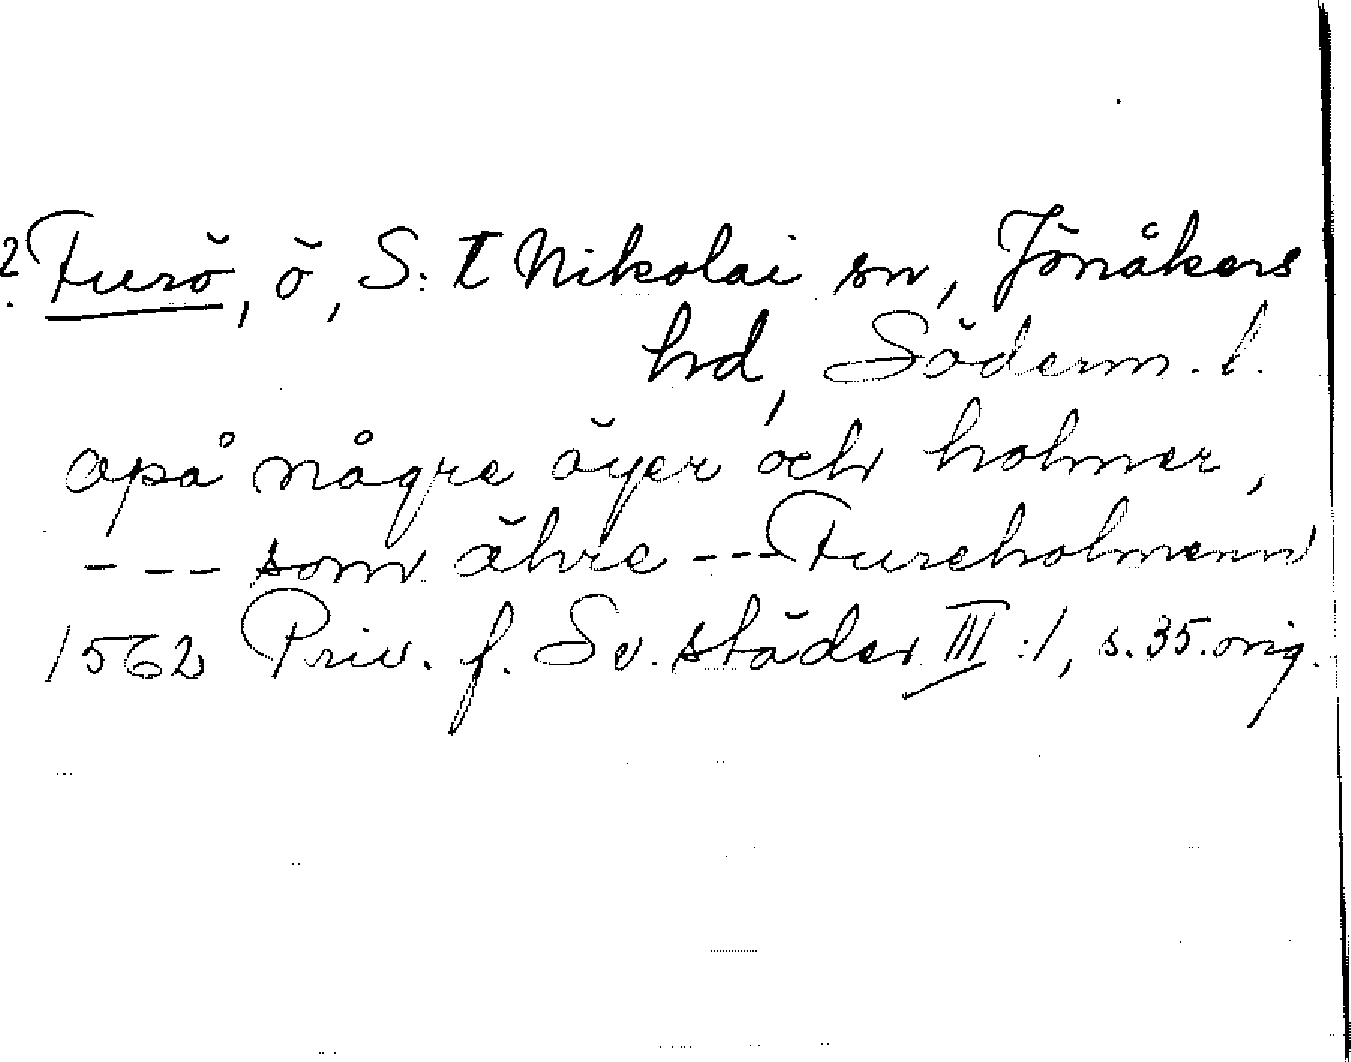 ? Furö, ö, S:t Nikolai sn, Jönåkers
hrd, Söderm. l.
opå någre öyer och holmer,
--- som ähre --- Fureholmenn
1562 Priv. f. Sv. städer III:1, s. 35. orig.